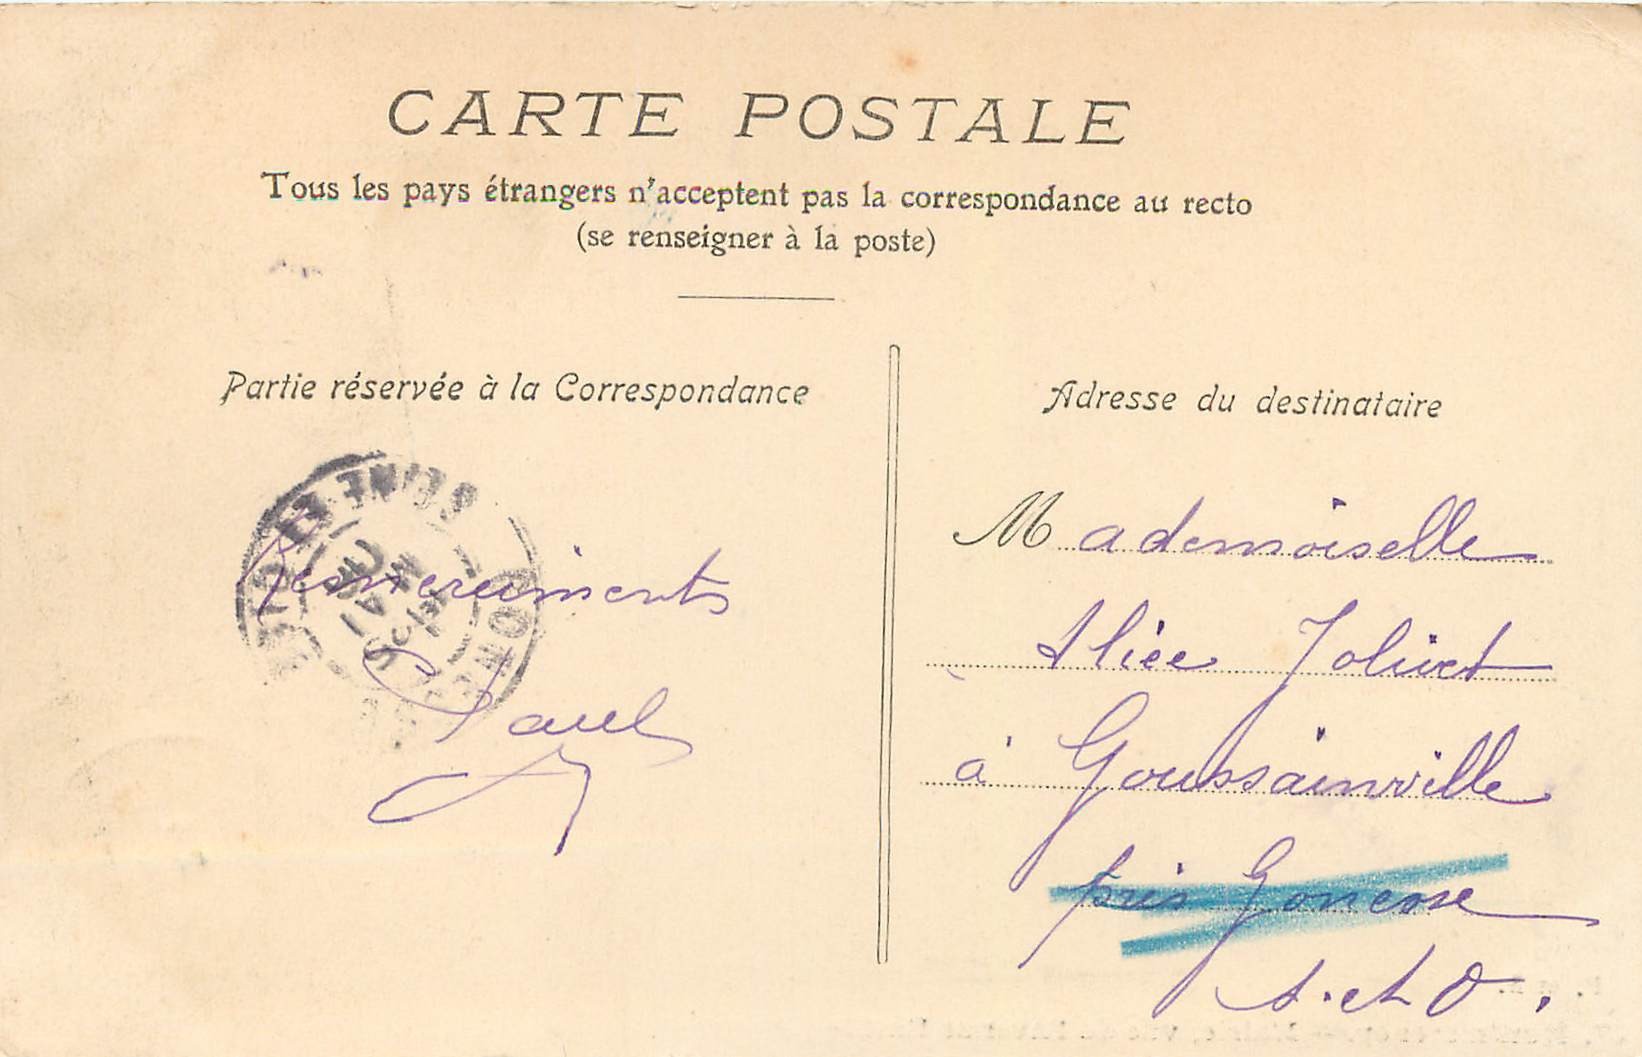 CARTE POSTALE
Tous les pays étrangers n'acceptent pas la correspondance au recto
(se renseigner à la poste)
Partie réservée à la Correspondance
Adresse du destinataire
SEINE ET OISE
Remerciments
Paul
Mademoiselle
Alice Jolivet
à Goussainville
près Gonesse
S. et O.